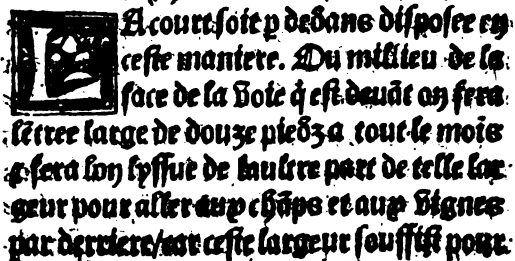 LA court soit p dedans disposee en
ceste maniere. Du millieu de la
face de la voie q̃ est deuãt on fera
lẽtree large de douze piedz a tout le mois
⁊ fera lon lyssue de laultre part de telle lar
geur pour aller aux chãps et aux vignes
par derriere/car ceste largeur souffist pour